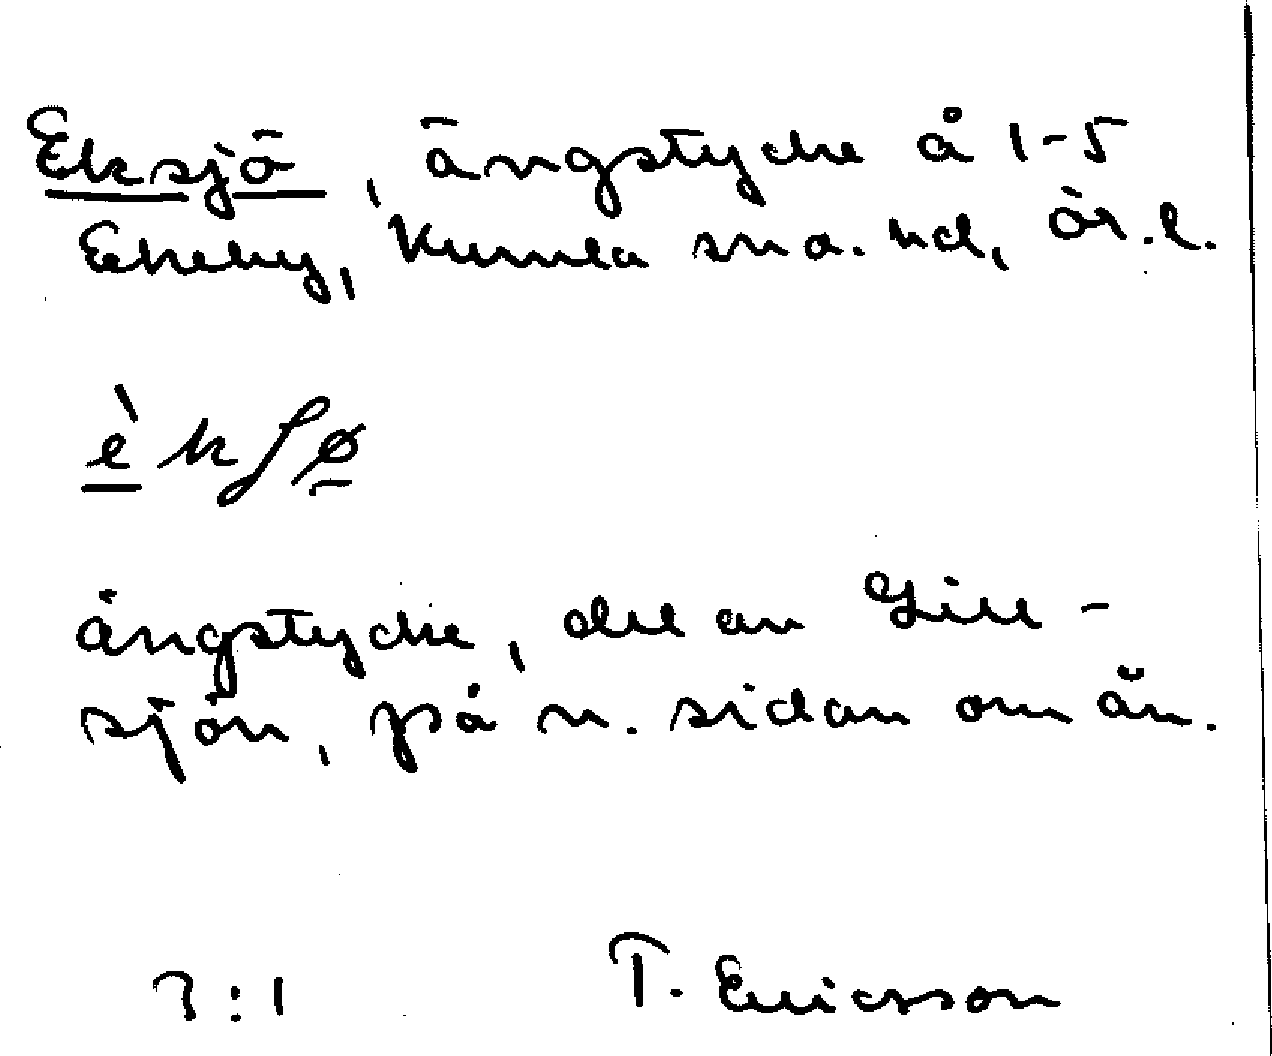 Eksjö, ängstycke å 1-5
Ekeby, Kumla sn o. hd, Ör. l.
è̱kʃø̱
ängstycke, del av Lill-
sjön, på n. sidan om ån.
7:1 T. Ericsson